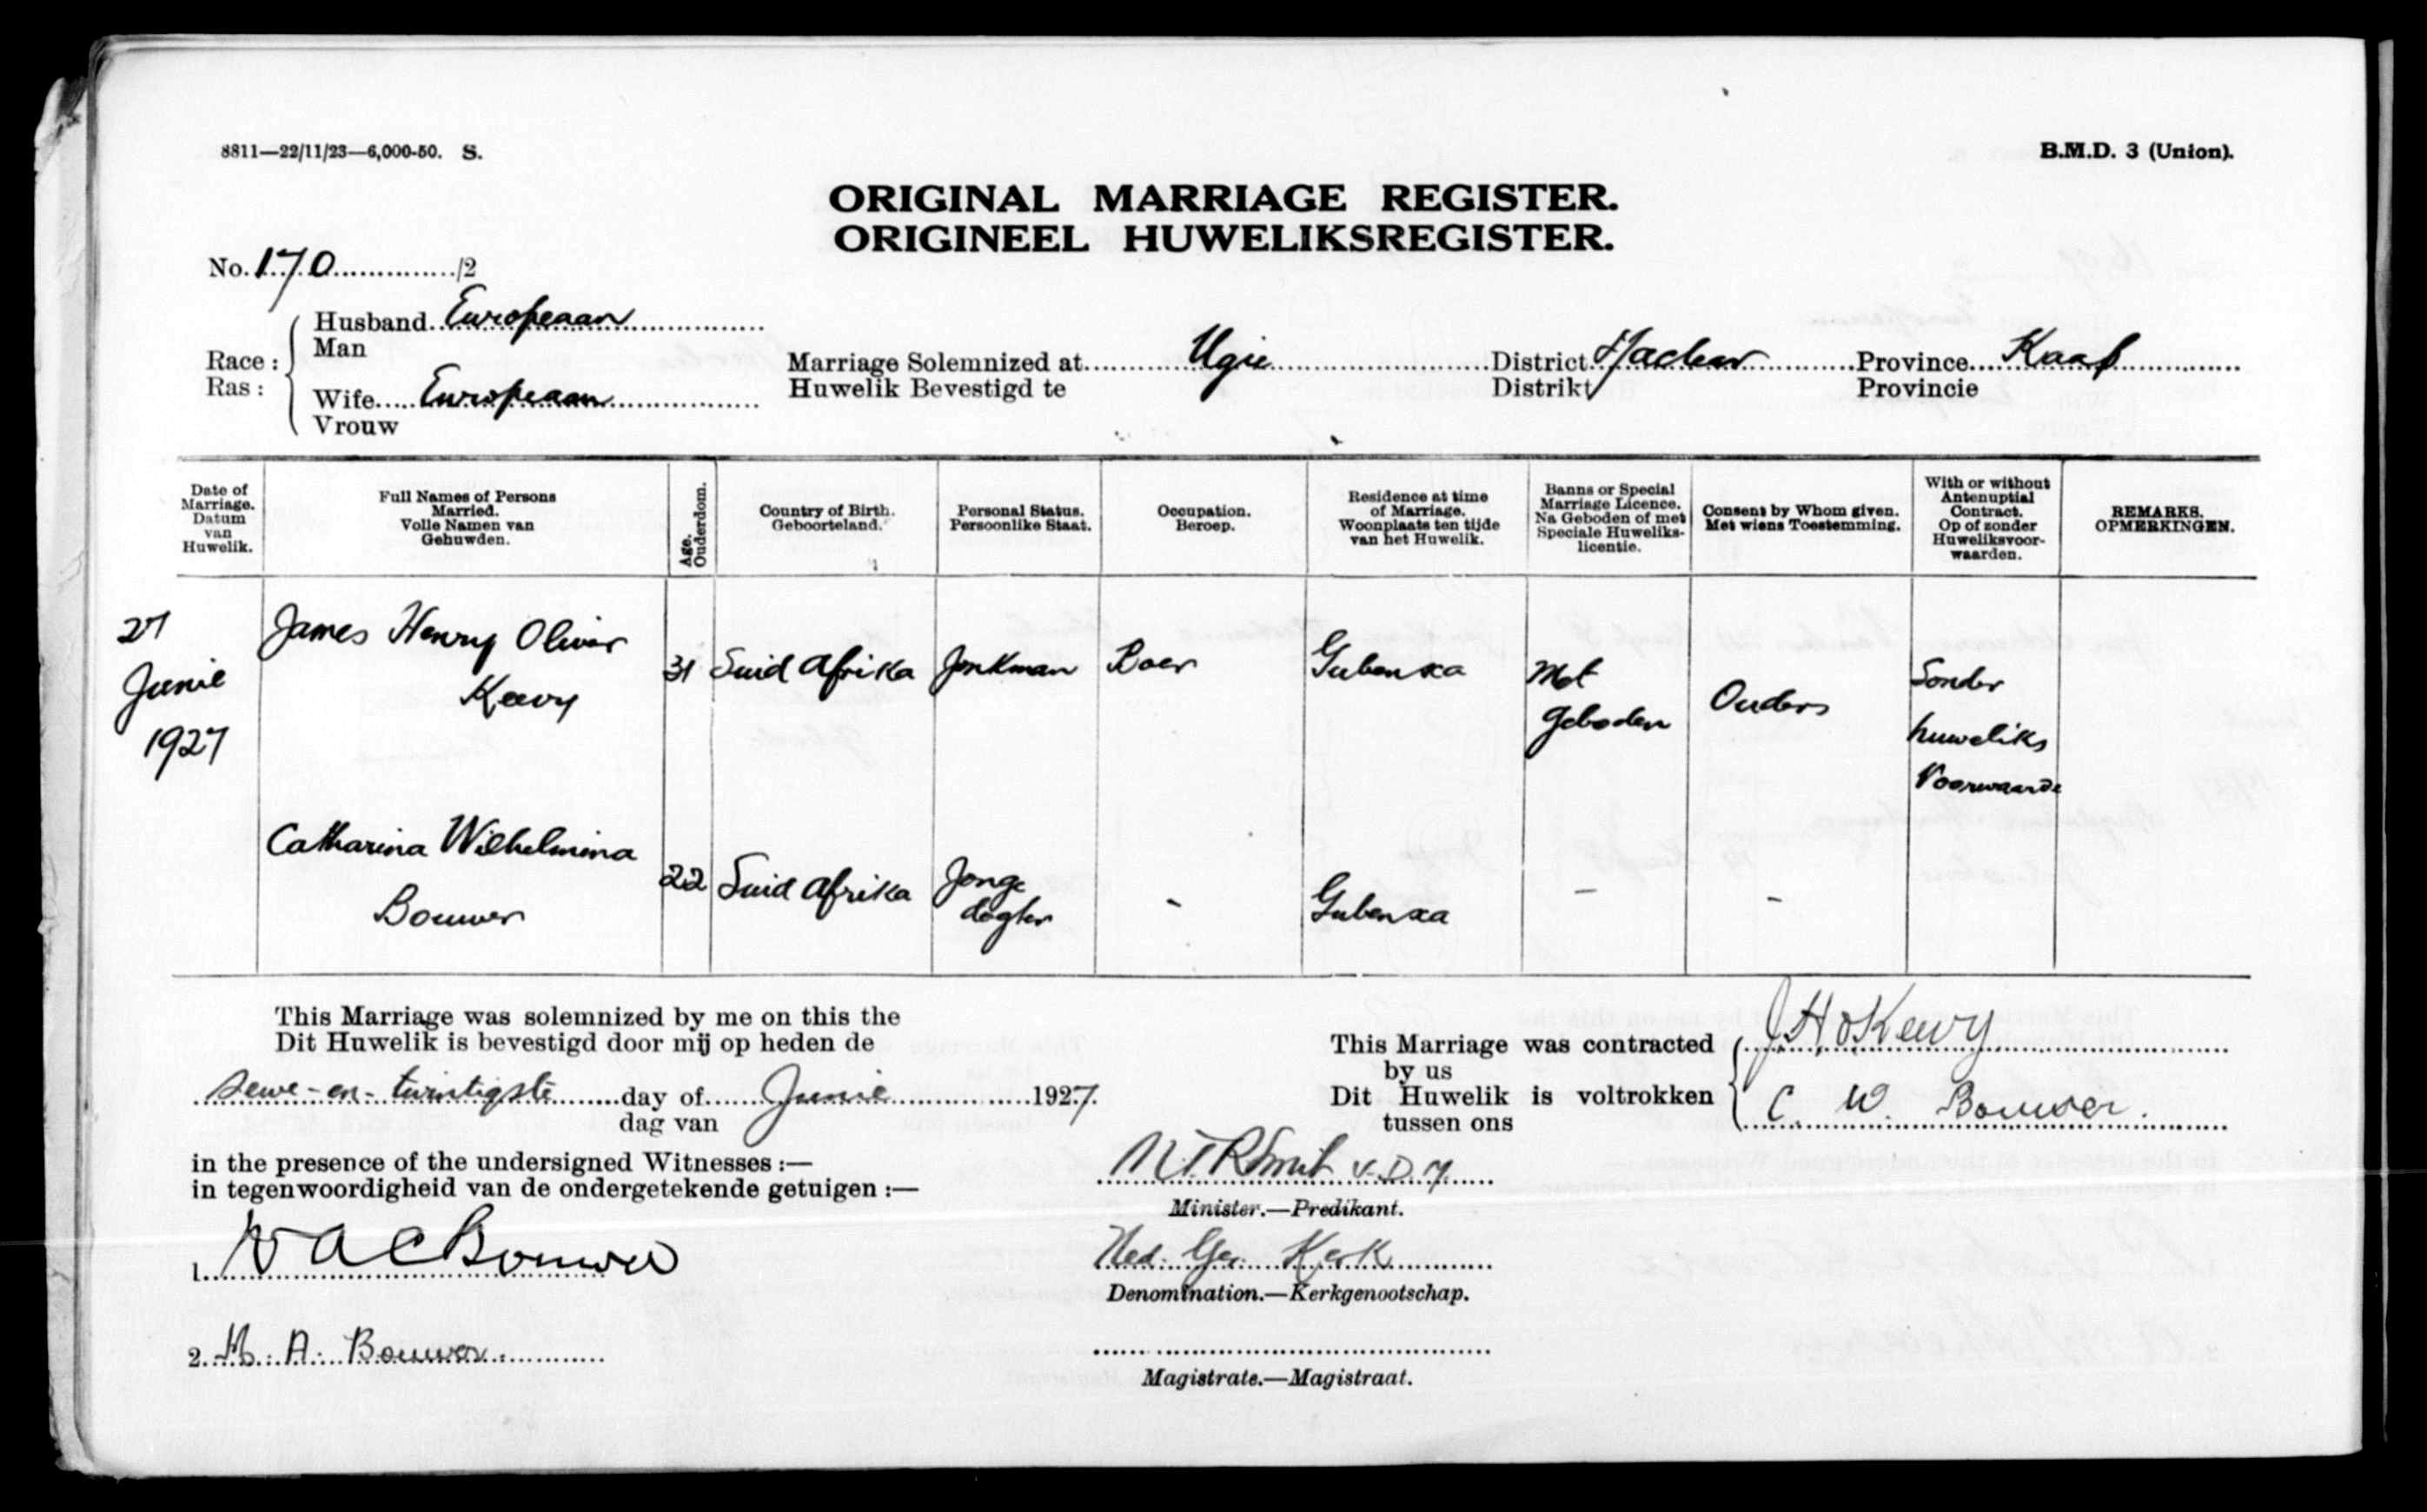 8811—22/11/23—6,000-50. S.
B.M.D. 3 (Union).
ORIGINAL MARRIAGE REGISTER.
ORIGINEEL HUWELIKSREGISTER.
No. 170 /2
Race : Husband Europeaan
Ras : Man
Wife Europeaan
Vrouw
Marriage Solemnized at Ugie District Maclear Province Kaap
Huwelik Bevestigd te Distrikt Provincie
Date of Marriage. Datum van Huwelik.
Full Names of Persons Married. Volle Namen van Gehuwden.
Age. Ouderdom.
Country of Birth. Geboorteland.
Personal Status. Persoonlike Staat.
Occupation. Beroep.
Residence at time of Marriage. Woonplaats ten tijde van het Huwelik.
Banns or Special Marriage Licence. Na Geboden of met Speciale Huweliks-licentie.
Consent by Whom given. Met wiens Toestemming.
With or without Antenuptial Contract. Op of zonder Huweliksvoor-waarden.
REMARKS. OPMERKINGEN.
27 Junie 1927
James Henry Oliver Keevy
31
Suid Afrika
Jonkman
Boer
Gubenxa
Met Geboden
Ouders
Sonder huweliks Voorwaarde
Catharina Wilhelmina Bouwer
22
Suid Afrika
Jonge dogter
-
Gubenxa
-
-
This Marriage was solemnized by me on this the
Dit Huwelik is bevestigd door mij op heden de
sewe-en-twintigste day of Junie 1927.
dag van
in the presence of the undersigned Witnesses :—
in tegenwoordigheid van de ondergetekende getuigen :—
1. W A C Bouwer
2. M. A. Bouwer
This Marriage was contracted by us
J H O Keevy
Dit Huwelik is voltrokken tussen ons
C. W. Bouwer.
Smit V.D.M.
Minister.—Predikant.
Ned. Ger. Kerk
Denomination.—Kerkgenootschap.
Magistrate.—Magistraat.